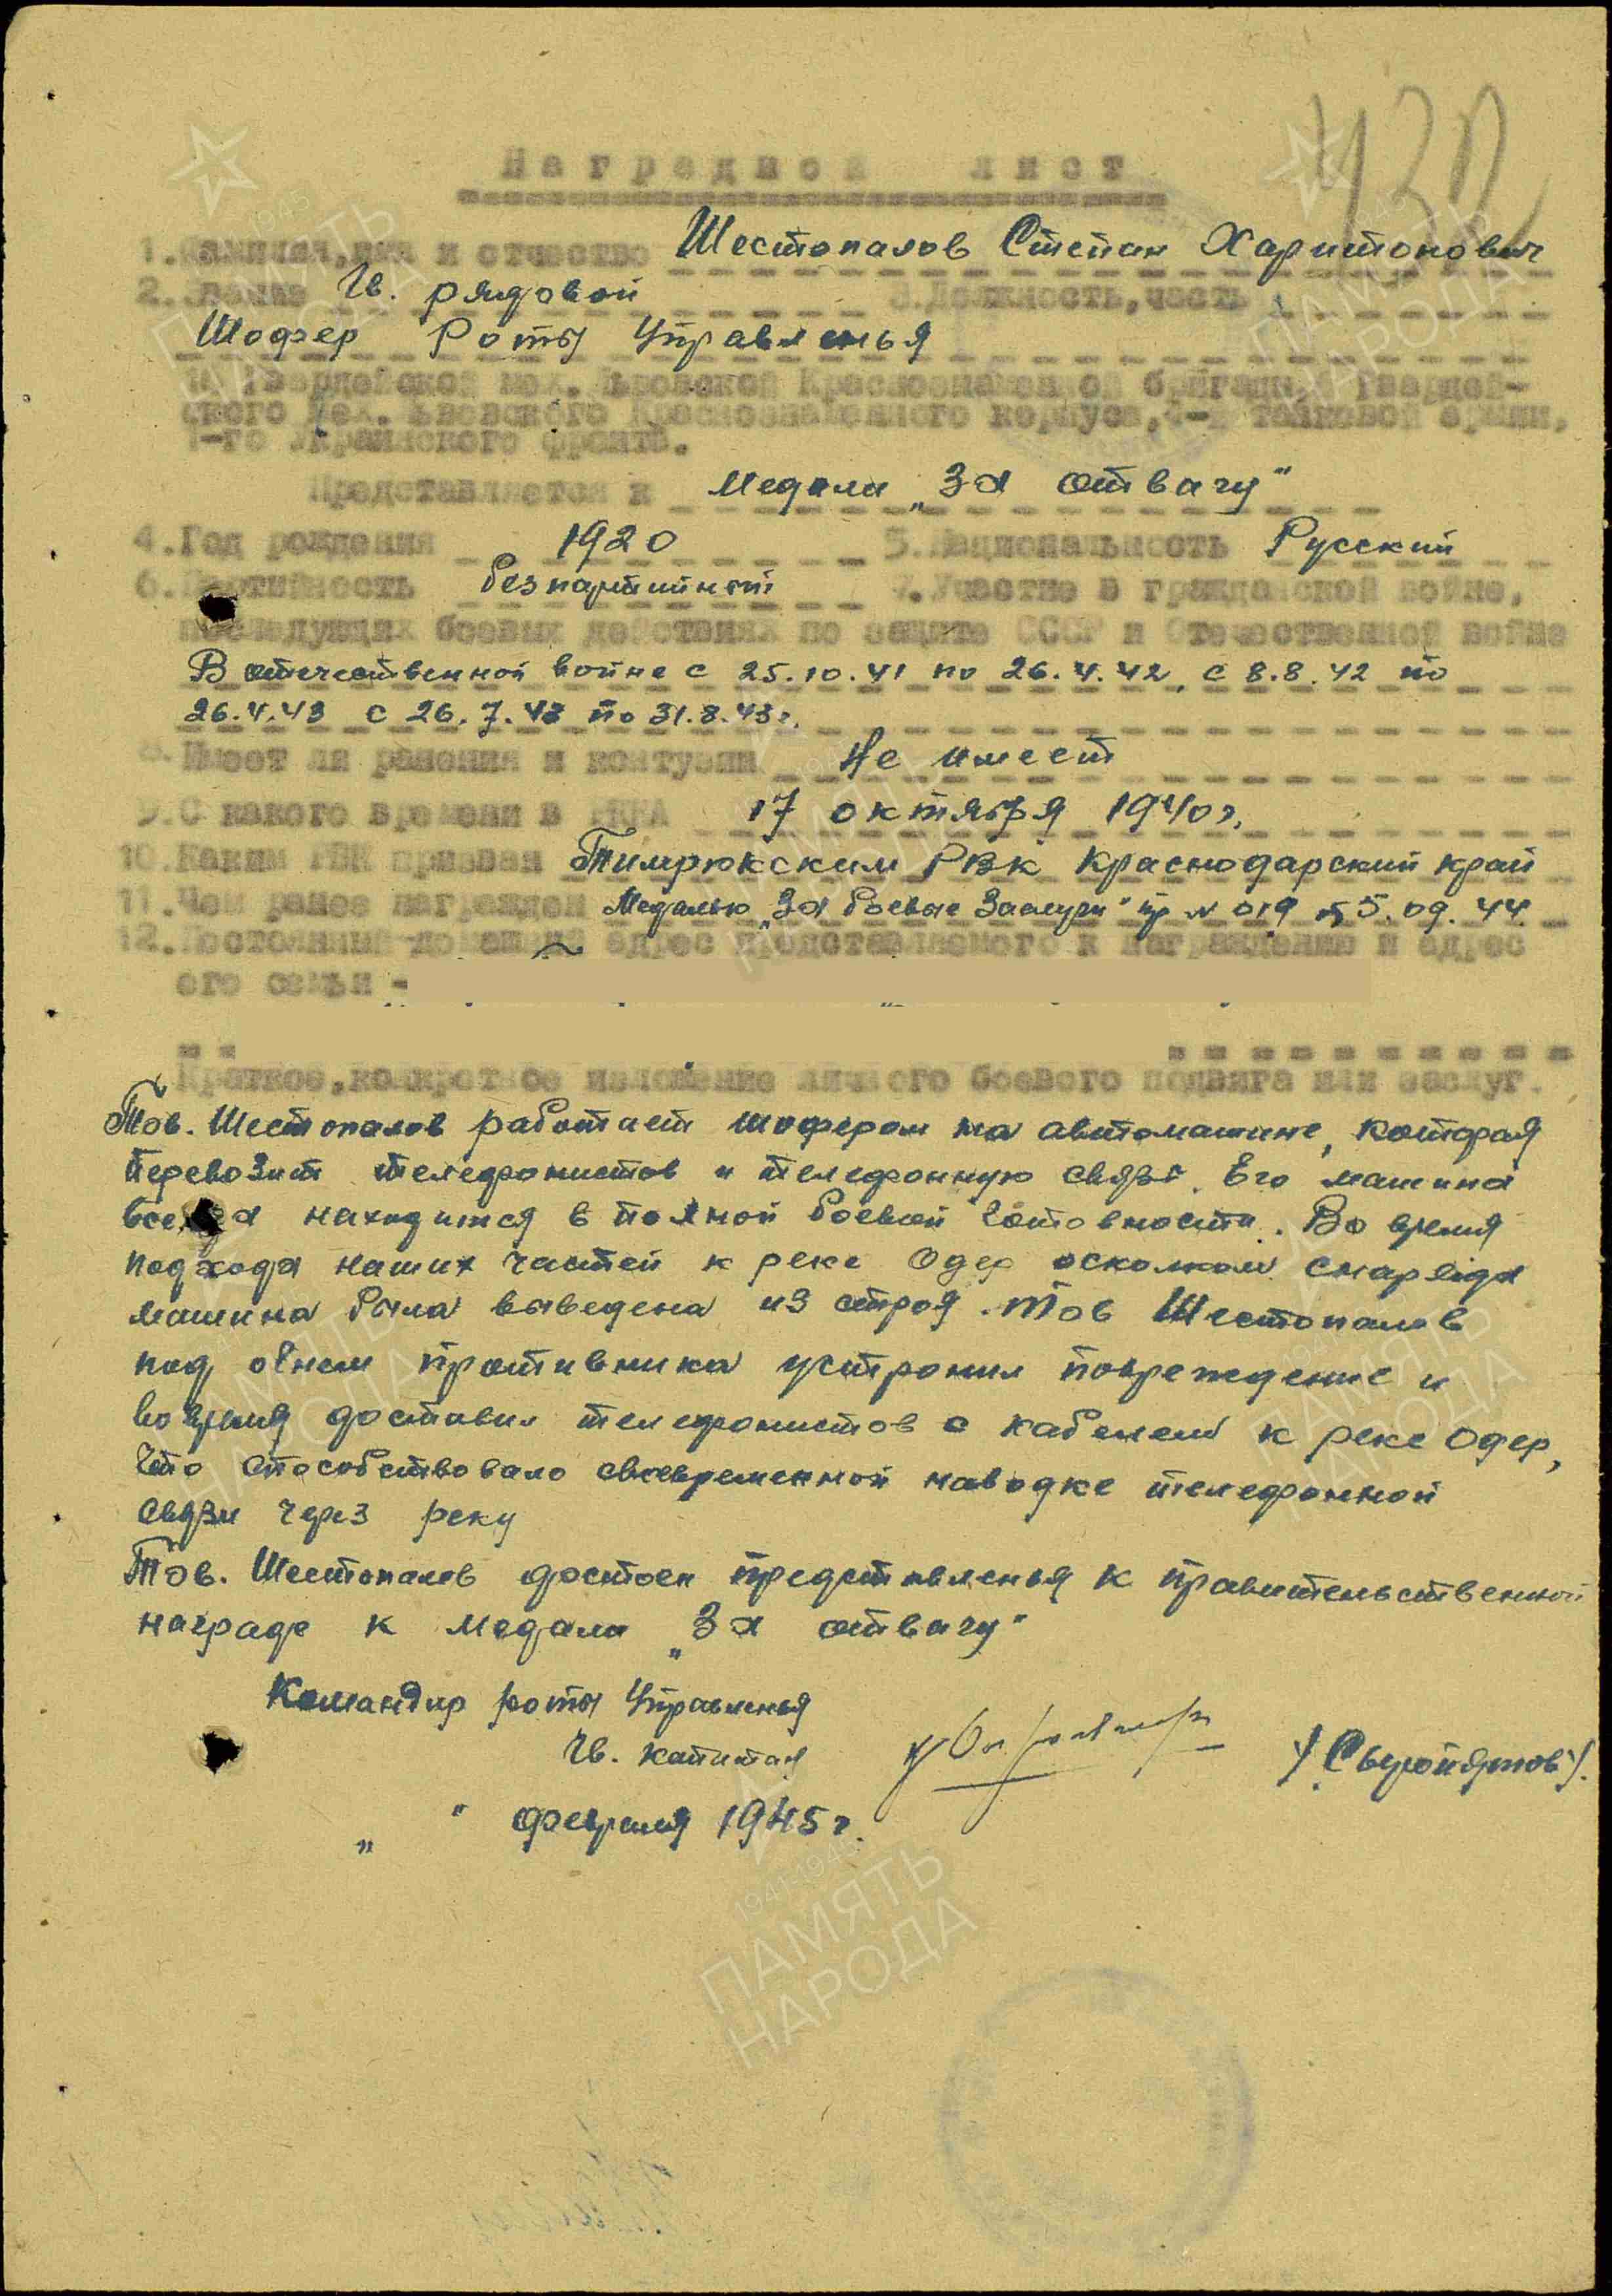 432
Наградной лист
1.Фамилия,имя и отчество Шестопалов Степан Харитонович
2.Звание Гв. рядовой 3.Должность,часть
Шофер Роты Управленья
Гвардейской мех. Львовской Краснознаменной бригады, Гвардей-
ского мех. Львовского Краснознаменного корпуса,4-й танковой армии,
1-го Украинского фронта.
Представляется к медали „За отвагу"
4.Год рождения 1920 5.Национальность Русский
6.Партийность безпартийный 7.Участие в гражданской войне,
последующих боевых действиях по защите СССР и Отечественной войне
В отечественной войне с 25.10.41 по 26.4.42, с 8.8.42 по
26.4.43 с 26.7.43 по 31.8.43г.
8.Имеет ли ранения и контузии Не имеет
9.С какого времени в РККА 17 октября 1940г.
10.Каким РВК призван Тимрюкским РВК Краснодарский край
11.Чем ранее награжден Медалью „За боевые Заслуги" пр № 019 от 5.09.44
12.Постоянный домашний адрес представляемого к награждению и адрес
его семьи -
Краткое,конкретное изложение личного боевого подвига или заслуг.
Тов. Шестопалов работает шофером на автомашине, которая
перевозит телефонистов и телефонную связь. Его машина
всегда находится в полной боевой готовности. Во время
подхода наших частей к реке Одер осколком снаряда
машина была выведена из строя. Тов Шестопалов
под огнем противника устронил повреждение и
во время доставил телефонистов с кабелем к реке Одер,
что способствовало своевременной наводке телефонной
связи через реку
Тов. Шестопалов достоен представленья к правительственной
награде к медали „За отвагу"
Командир роты Управленья
Гв. капитан /Сыропятов/.
„ " февраля 1945г.
1941-1945
ПАМЯТЬ
НАРОДА